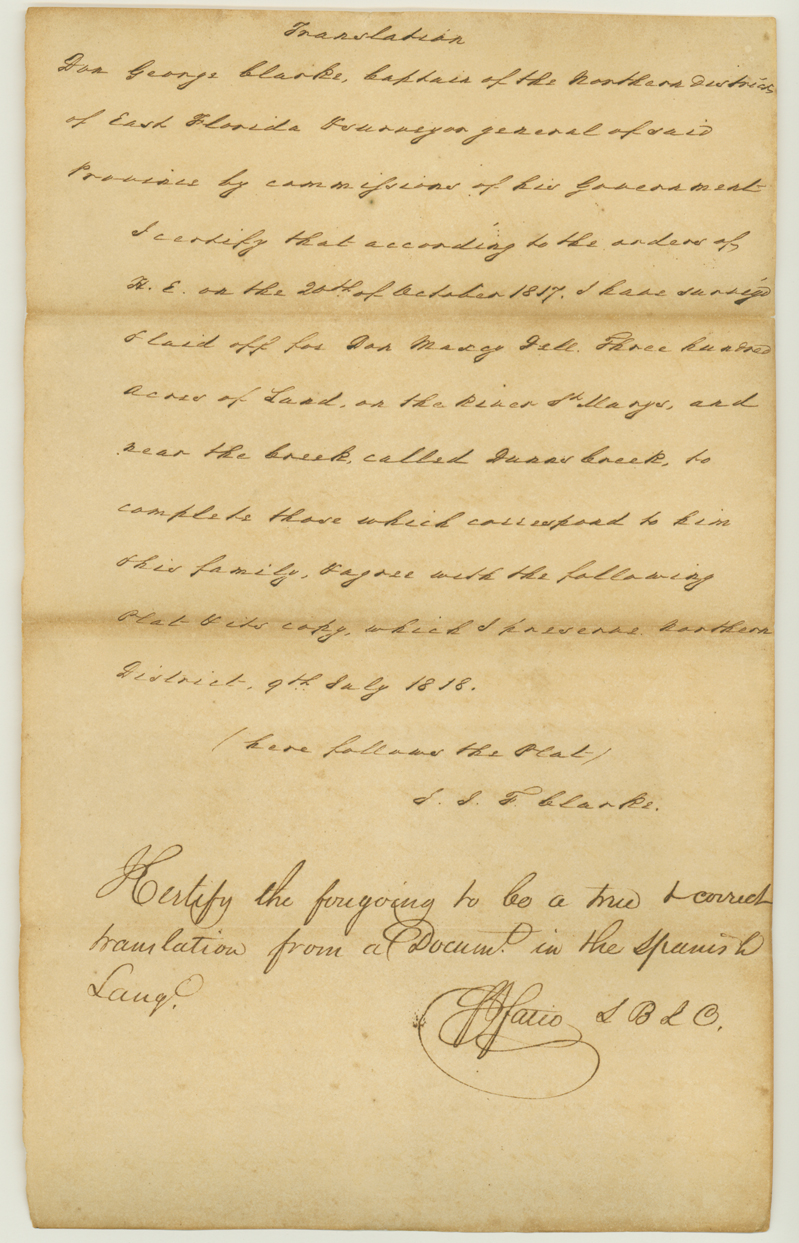 Translation
Don George Clarke, Captain of the Northern district
of East Florida & surveyor general of said
Province by commissions of his Government
I certify that according to the orders of
H. E. on the 20th of October 1817. I have survey'd
& laid off for Don Maxey Dell. Three hundred
Acres of Land, on the River St. Marys, and
near the Creek, called Dunns Creek, to
complete those which correspond to him
& his family, & agree with the following
Plat & its copy, which I preserve Northern
District, 9th July 1818.
(here follows the Plat)
F. Clarke.
I Certify the foregoing to be a true & correct
translation from a Docum.t in the Spanish
Lang.e
Fatio S B L C.